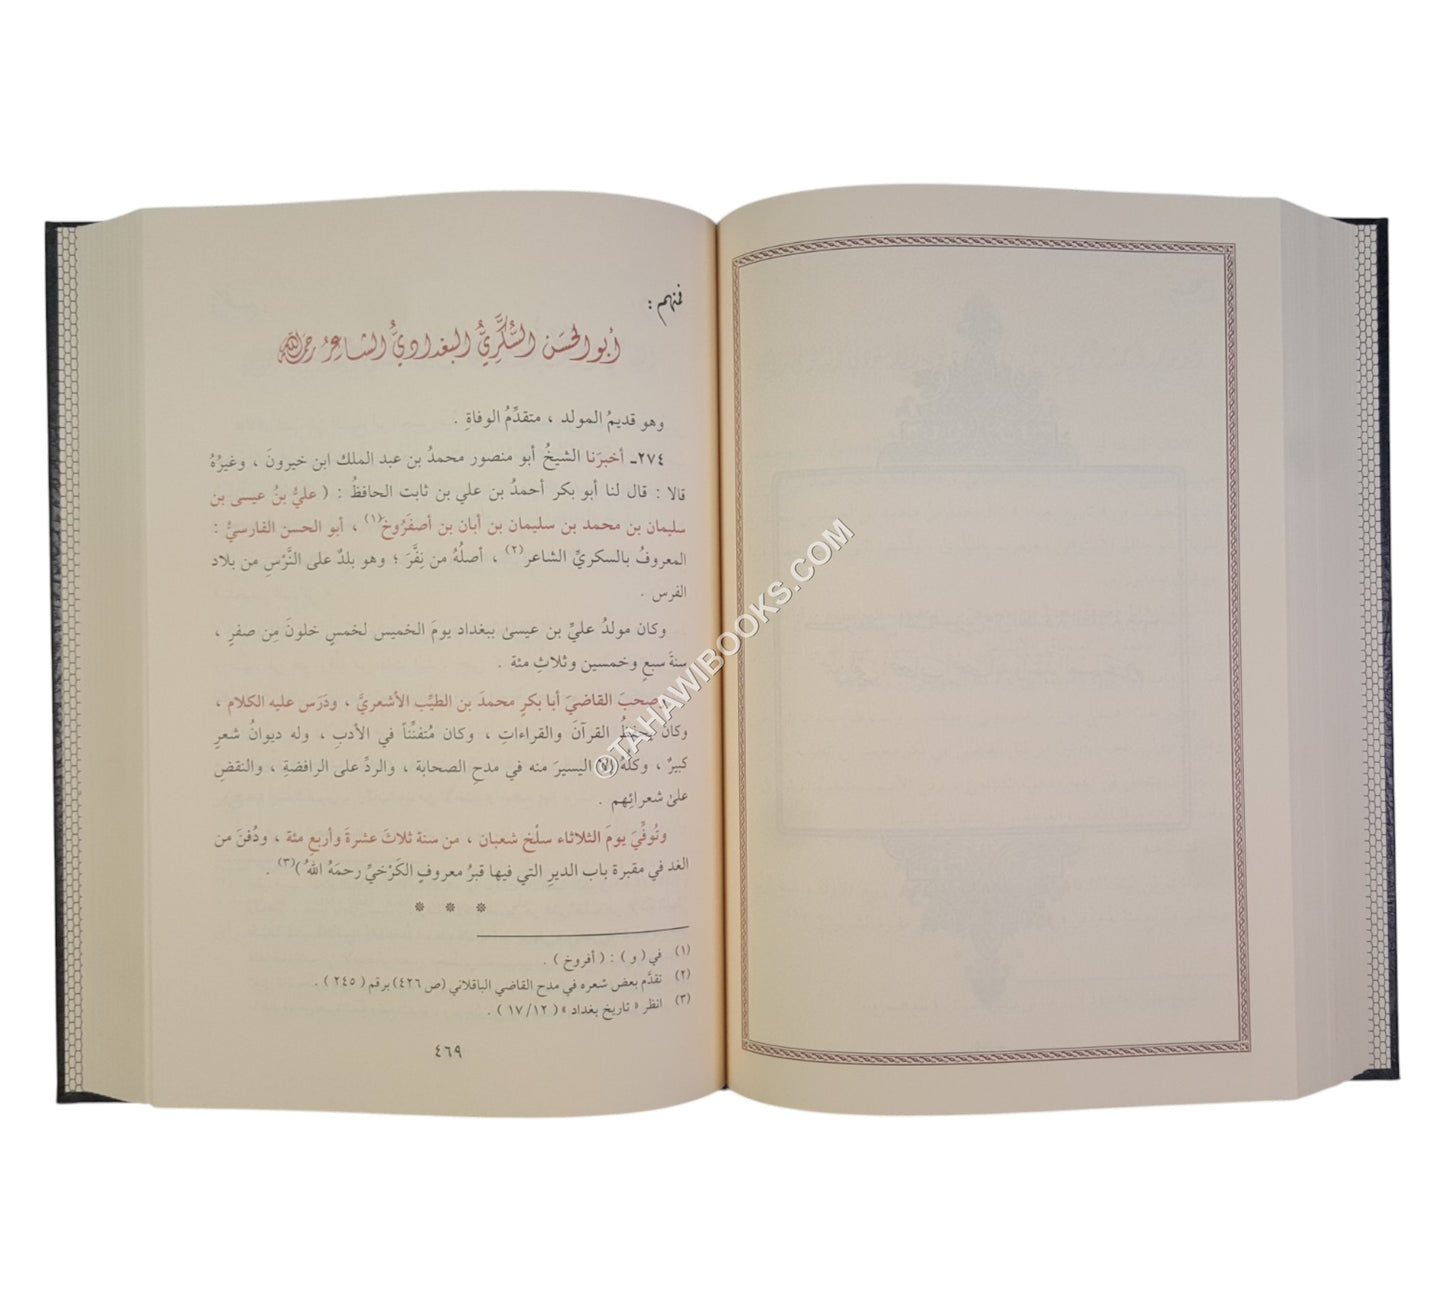 فمنهم :
أبو الحسَن السُّكَّرِيُّ البغداديُّ الشاعِرُ رحمَهُ اللهُ
وهو قديمُ المولد ، متقدِّمُ الوفاةِ .
٢٧٤ـ أخبرَنا الشيخُ أبو منصور محمدُ بن عبد الملك ابن خيرونَ ، وغيرُهُ
قالا : قال لنا أبو بكر أحمدُ بن علي بن ثابت الحافظُ : ( عليُّ بنُ عيسى بن
سليمان بن محمد بن سليمان بن أبان بن أصفَرُوخَ(١) ، أبو الحسن الفارسيُّ :
المعروفُ بالسكريِّ الشاعر(٢) ، أصلُهُ من نِفَّرَ ؛ وهو بلدٌ على النَّرْسِ من بلاد
الفرس .
وكان مولدُ عليِّ بن عيسىٰ ببغداد يومَ الخميس لخمسٍ خلونَ مِن صفرٍ ،
سنةَ سبعٍ وخمسين وثلاثِ مئة .
وصحبَ القاضيَ أبا بكرٍ محمدَ بن الطيِّب الأشعريَّ ، ودَرَس عليه الكلام ،
وكانَ يحفظُ القرآنَ والقراءاتِ ، وكان مُتفنِّناً في الأدبِ ، وله ديوانُ شعرٍ
كبيرٌ ، وكلُّهُ إلا اليسيرَ منه في مدحِ الصحابة ، والردِّ على الرافضةِ ، والنقضِ
علىٰ شعرائِهم .
وتُوفِّيَ يومَ الثلاثاء سلْخ شعبان ، من سنة ثلاثَ عشرةَ وأربعِ مئة ، ودُفنَ من
الغد في مقبرة باب الديرِ التي فيها قبرُ معروفٍ الكَرْخيِّ رحمَهُ اللهُ )(٣) .
* * *
(١) في ( و ) : ( أفروخ ) .
(٢) تقدَّم بعض شعره في مدح القاضي الباقلاني (ص ٤٢٦) برقم ( ٢٤٥ ) .
(٣) انظر « تاريخ بغداد » ( ١٧/١٢ ) .
٤٦٩
©TAHAWIBOOKS.COM